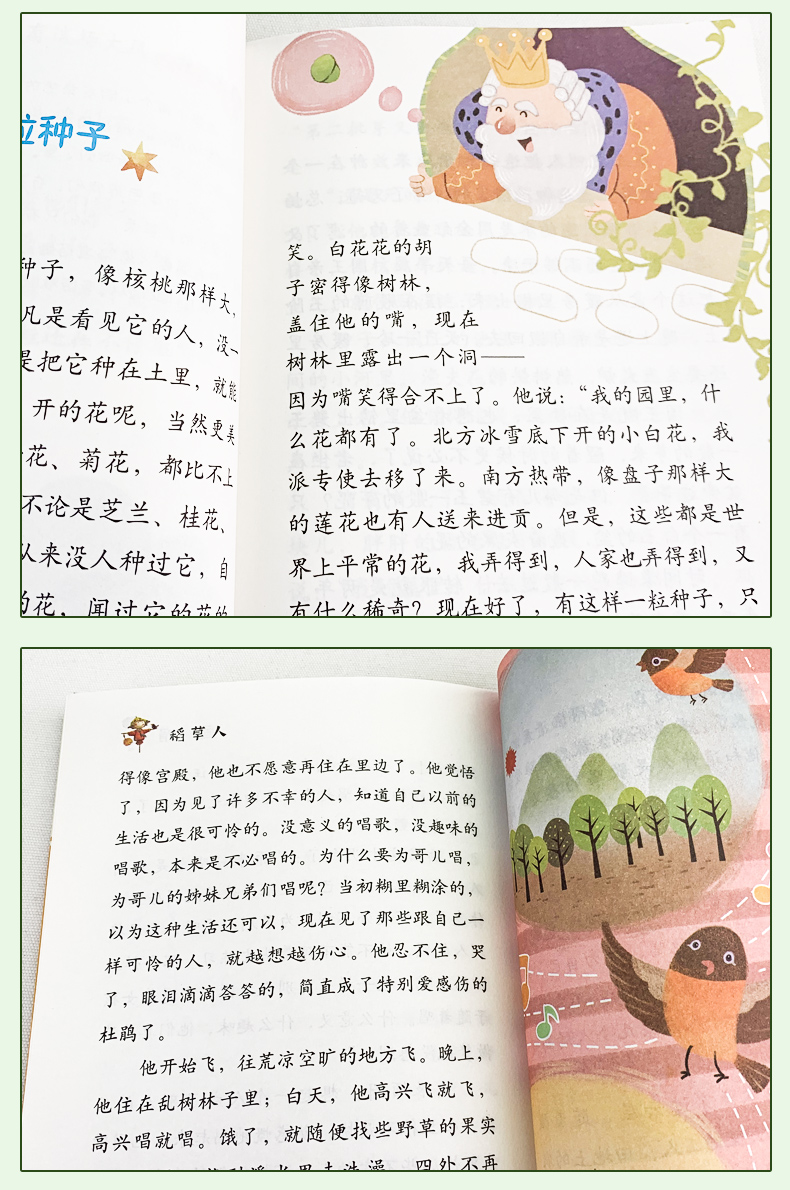 粒种子
种子，像核桃那样大，
凡是看见它的人，没一
是把它种在土里，就能
开的花呢，当然更美
花、菊花，都比不上
不论是芝兰、桂花、
从来没人种过它，自
的花，闻过它的花的
笑。白花花的胡
子密得像树林，
盖住他的嘴，现在
树林里露出一个洞——
因为嘴笑得合不上了。他说：“我的园里，什
么花都有了。北方冰雪底下开的小白花，我
派专使去移了来。南方热带，像盘子那样大
的莲花也有人送来进贡。但是，这些都是世
界上平常的花，我弄得到，人家也弄得到，又
有什么稀奇？现在好了，有这样一粒种子，只
稻草人
得像宫殿，他也不愿意再住在里边了。他觉悟
了，因为见了许多不幸的人，知道自己以前的
生活也是很可怜的。没意义的唱歌，没趣味的
唱歌，本来是不必唱的。为什么要为哥儿唱，
为哥儿的姊妹兄弟们唱呢？当初糊里糊涂的，
以为这种生活还可以，现在见了那些跟自己一
样可怜的人，就越想越伤心。他忍不住，哭
了，眼泪滴滴答答的，简直成了特别爱感伤的
杜鹃了。
他开始飞，往荒凉空旷的地方飞。晚上，
他住在乱树林子里；白天，他高兴飞就飞，
高兴唱就唱。饿了，就随便找些野草的果实
里去洗澡。四处不再